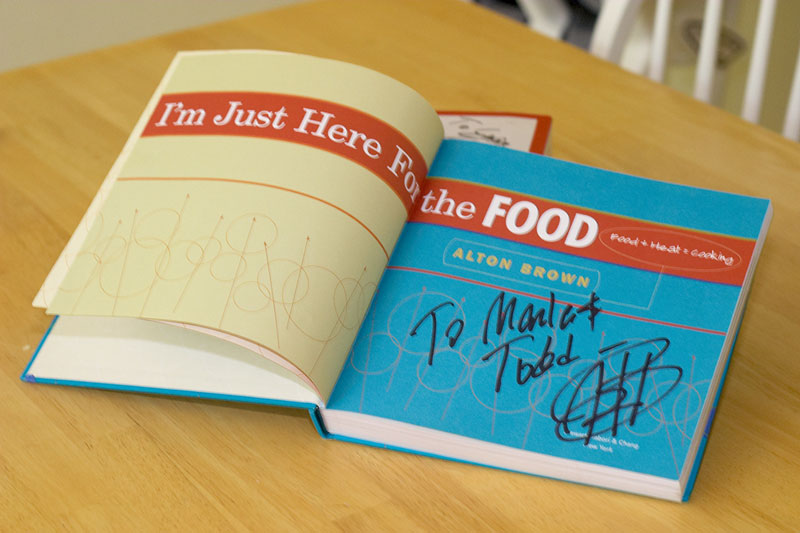 I'm Just Here For the FOOD
Food + Heat = Cooking
ALTON BROWN
To Marla &
Todd
& Chang
New York